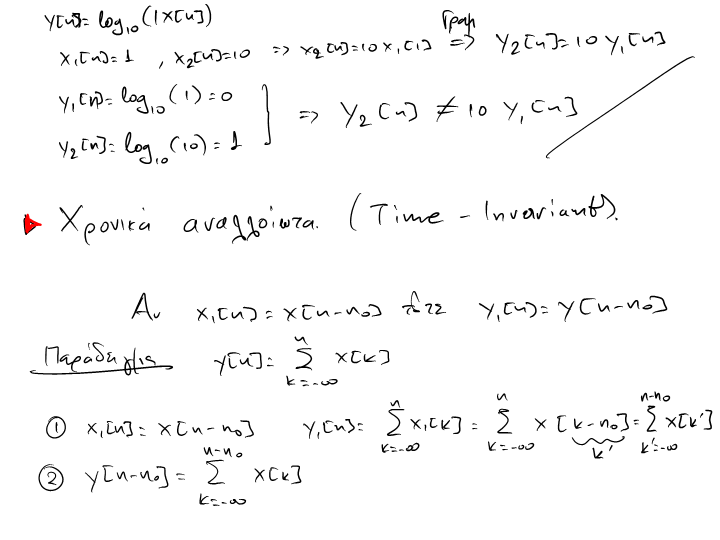 y[n] = log₁₀(|x[n]|)
x₁[n]=1 , x₂[n]=10 => x₂[n]=10 x₁[n] Γραμ => y₂[n]=10 y₁[n]
y₁[n]=log₁₀(1)=0
y₂[n]=log₁₀(10)=1 } => y₂[n] ≠ 10 y₁[n]
Χρονικά αναλλοίωτα. (Time-Invariant).
Αν x₁[n]=x[n-n₀] τότε y₁[n]=y[n-n₀]
Παράδειγμα y[n]= Σ_{k=-∞}^{n} x[k]
① x₁[n]=x[n-n₀] y₁[n]= Σ_{k=-∞}^{n} x₁[k] = Σ_{k=-∞}^{n} x[k-n₀] = Σ_{k'=-∞}^{n-n₀} x[k'] k'
② y[n-n₀]= Σ_{k=-∞}^{n-n₀} x[k]